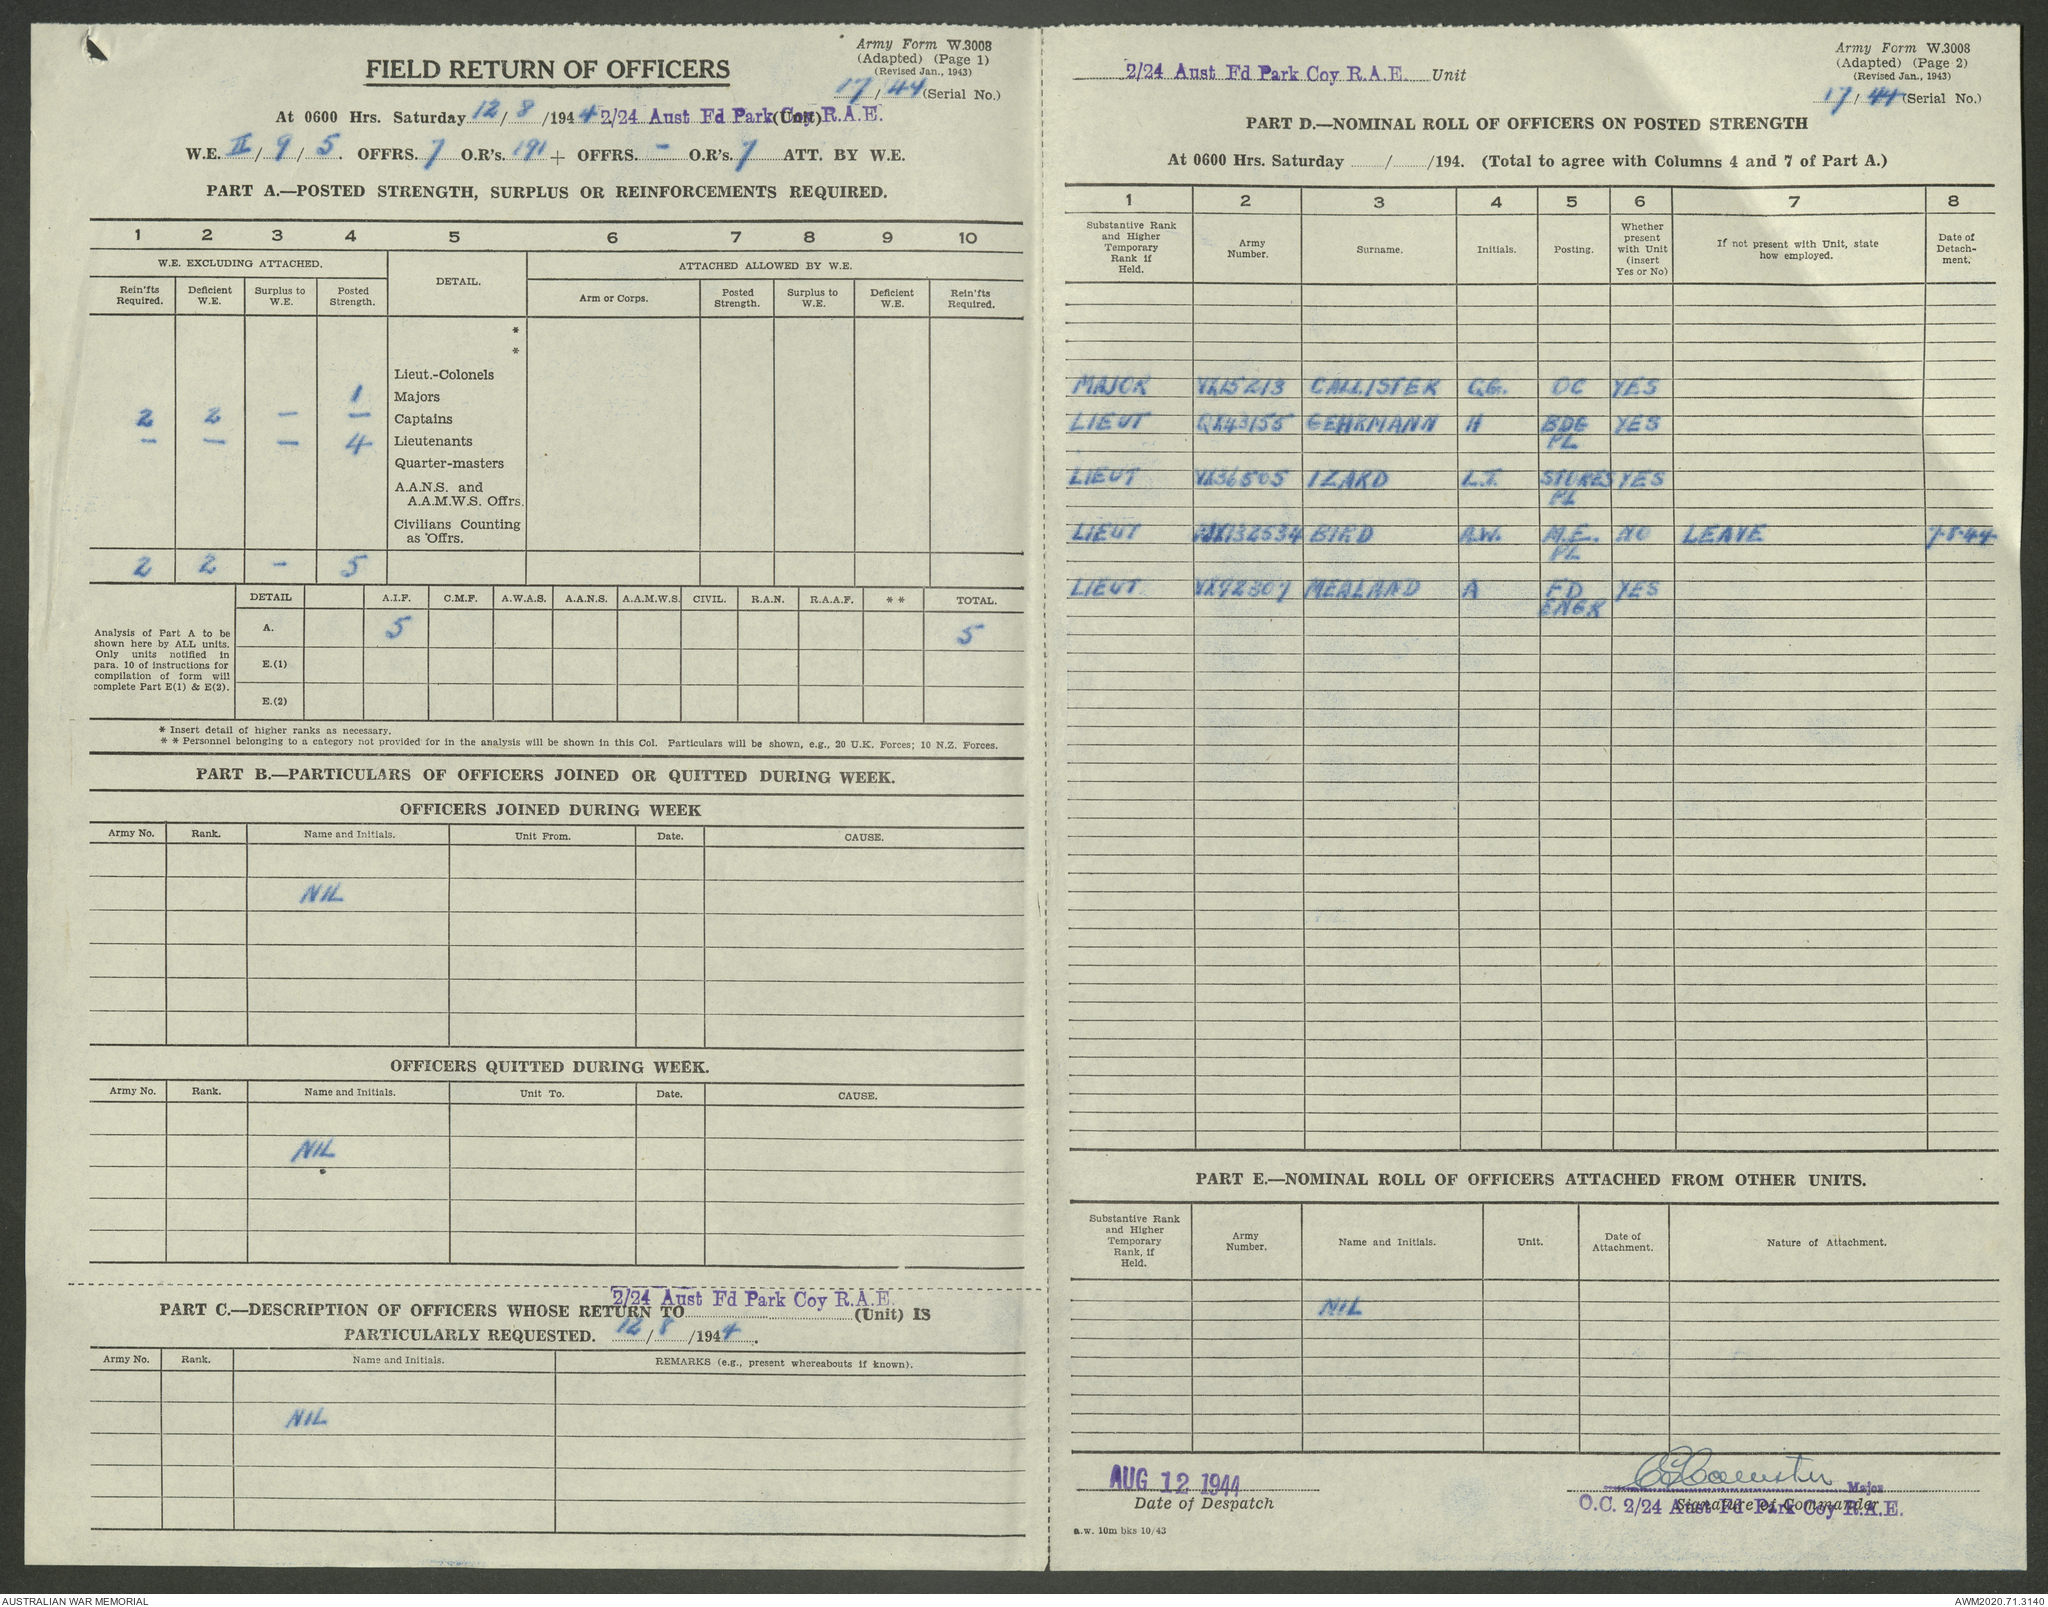 Army Form W.3008
(Adapted) (Page 1)
(Revised Jan., 1943)
FIELD RETURN OF OFFICERS
17/44 (Serial No.)
At 0600 Hrs. Saturday 12/8/1944 2/24 Aust Fd Park Coy R.A.E. (Unit)
W.E. II/9/5. OFFRS. 7 O.R's. 191 + OFFRS. - O.R's. 7 ATT. BY W.E.
PART A.—POSTED STRENGTH, SURPLUS OR REINFORCEMENTS REQUIRED.
1 2 3 4 5 6 7 8 9 10
W.E. EXCLUDING ATTACHED. DETAIL. ATTACHED ALLOWED BY W.E.
Rein'fts Required. Deficient W.E. Surplus to W.E. Posted Strength. Arm or Corps. Posted Strength. Surplus to W.E. Deficient W.E. Rein'fts Required.
*
*
Lieut.-Colonels
1 Majors
2 2 — — Captains
— — — 4 Lieutenants
Quarter-masters
A.A.N.S. and
A.A.M.W.S. Offrs.
Civilians Counting
as Offrs.
2 2 - 5
DETAIL A.I.F. C.M.F. A.W.A.S. A.A.N.S. A.A.M.W.S. CIVIL. R.A.N. R.A.A.F. * * TOTAL.
Analysis of Part A to be
shown here by ALL units.
Only units notified in
para. 10 of instructions for
compilation of form will
complete Part E(1) & E(2).
A. 5 5
E.(1)
E.(2)
* Insert detail of higher ranks as necessary.
* * Personnel belonging to a category not provided for in the analysis will be shown in this Col. Particulars will be shown, e.g., 20 U.K. Forces; 10 N.Z. Forces.
PART B.—PARTICULARS OF OFFICERS JOINED OR QUITTED DURING WEEK.
OFFICERS JOINED DURING WEEK
Army No. Rank. Name and Initials. Unit From. Date. CAUSE.
NIL
OFFICERS QUITTED DURING WEEK.
Army No. Rank. Name and Initials. Unit To. Date. CAUSE.
NIL
PART C.—DESCRIPTION OF OFFICERS WHOSE RETURN TO 2/24 Aust Fd Park Coy R.A.E. (Unit) IS
PARTICULARLY REQUESTED. 12/8/1944.
Army No. Rank. Name and Initials. REMARKS (e.g., present whereabouts if known).
NIL
Army Form W.3008
(Adapted) (Page 2)
(Revised Jan., 1943)
2/24 Aust Fd Park Coy R.A.E. Unit
17/44 (Serial No.)
PART D.—NOMINAL ROLL OF OFFICERS ON POSTED STRENGTH
At 0600 Hrs. Saturday ....../....../194. (Total to agree with Columns 4 and 7 of Part A.)
1 2 3 4 5 6 7 8
Substantive Rank and Higher Temporary Rank if Held. Army Number. Surname. Initials. Posting. Whether present with Unit (insert Yes or No) If not present with Unit, state how employed. Date of Detach-ment.
MAJOR VX15213 CALLISTER C.G. OC YES
LIEUT QX43155 GEHRMANN H BDG PL YES
LIEUT VX36505 IZARD L.T. STORES PL YES
LIEUT 132534 BIRD A.W. M.E. PL NO LEAVE 7-8-44
LIEUT VX92307 MEALAND A FD ENGR YES
PART E.—NOMINAL ROLL OF OFFICERS ATTACHED FROM OTHER UNITS.
Substantive Rank and Higher Temporary Rank, if Held. Army Number. Name and Initials. Unit. Date of Attachment. Nature of Attachment.
NIL
AUG 12 1944
Date of Despatch
CGCallister Major
Signature of Commander
O.C. 2/24 Aust Fd Park Coy R.A.E.
a.w. 10m bks 10/43
AUSTRALIAN WAR MEMORIAL
AWM2020.71.3140